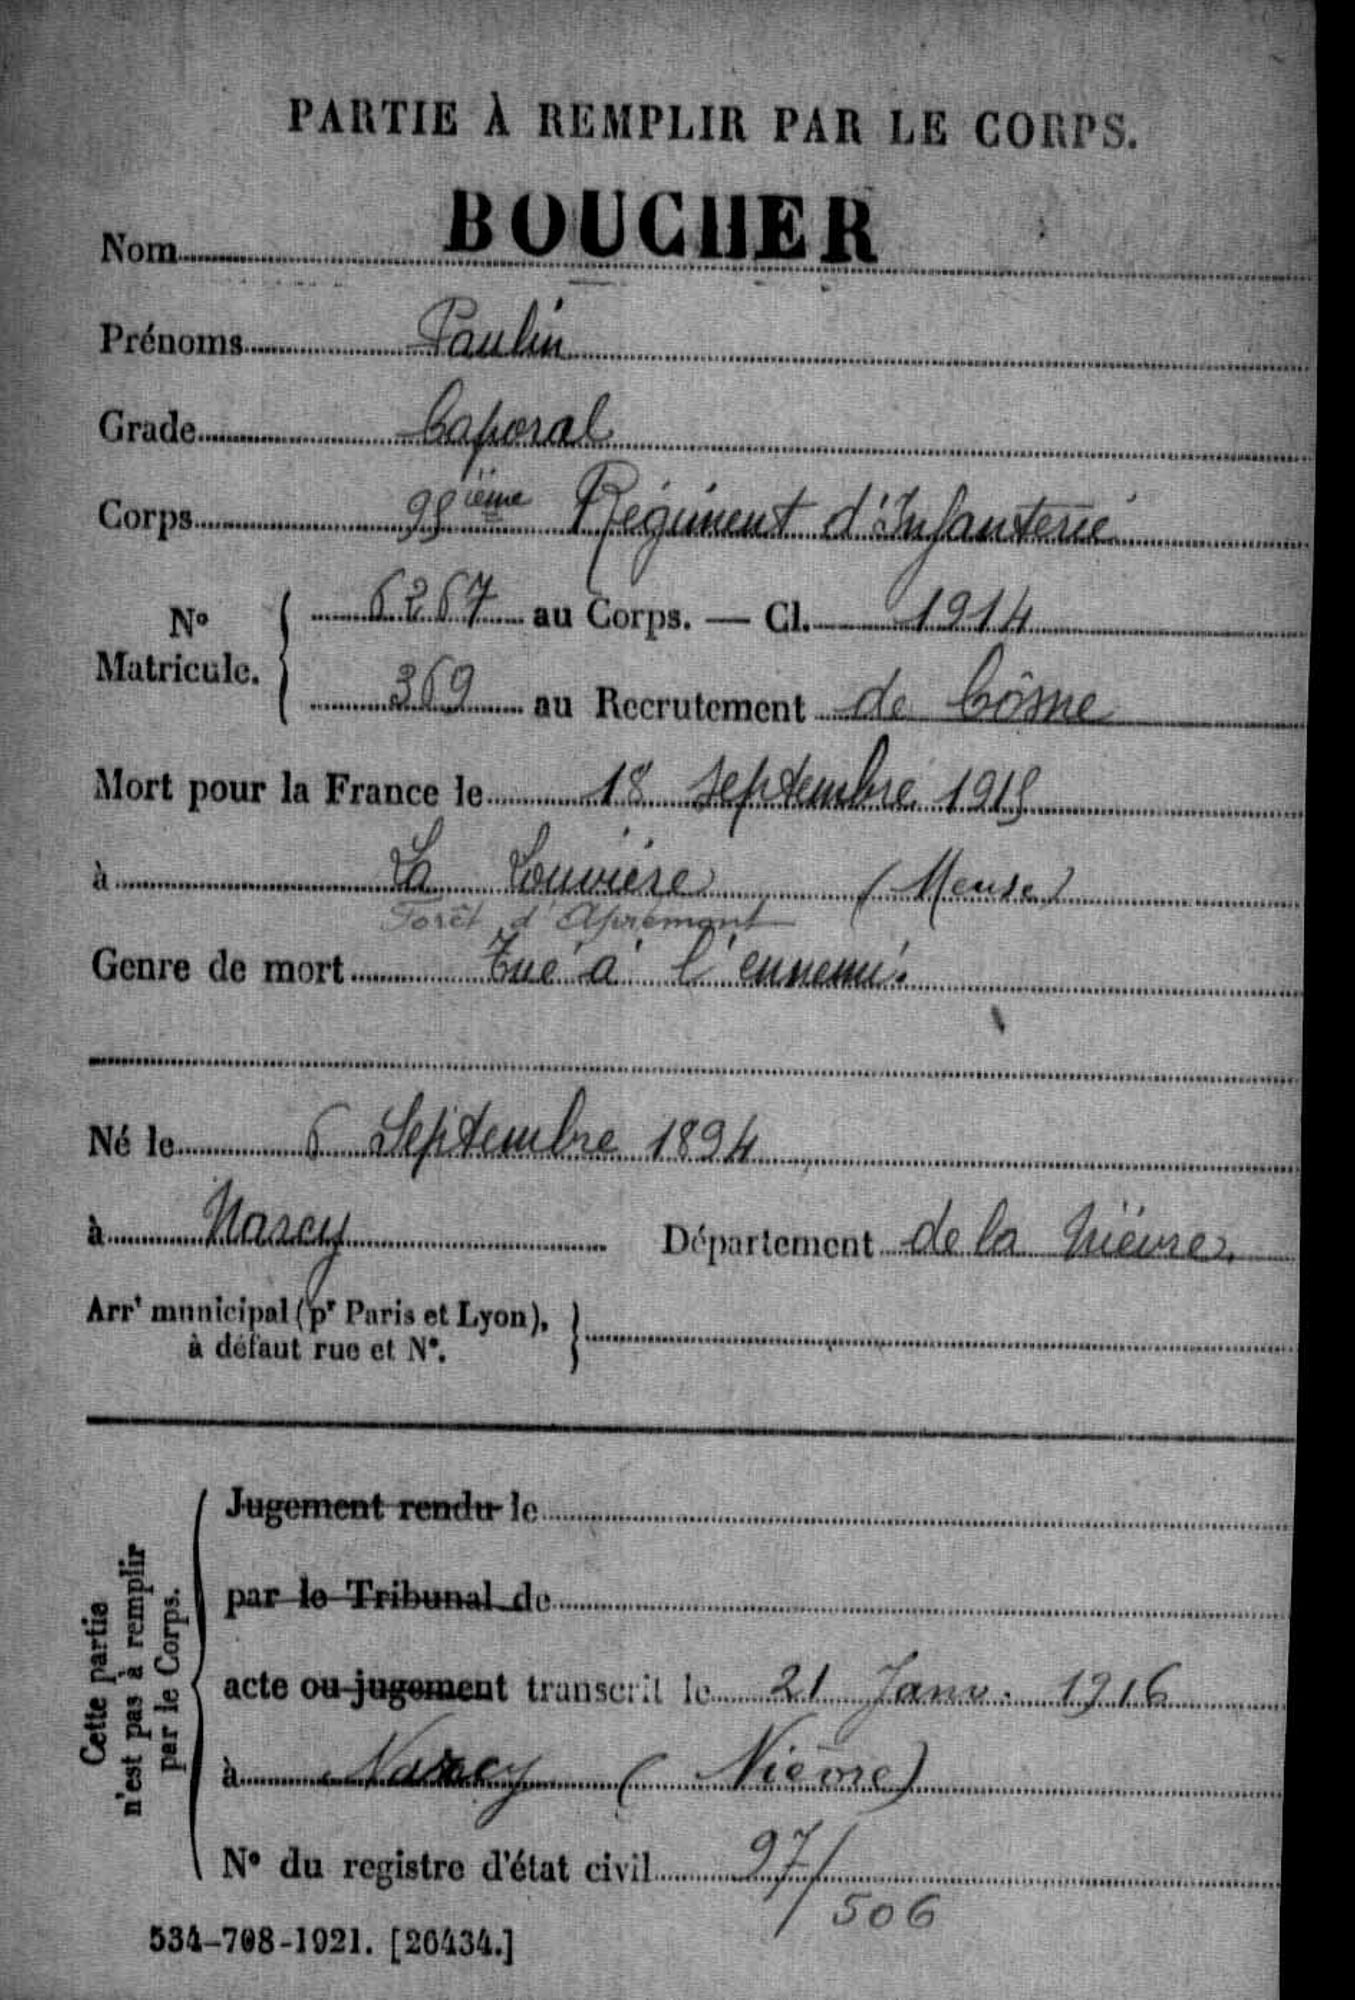 PARTIE À REMPLIR PAR LE CORPS.
Nom BOUCHER
Prénoms Paulin
Grade Caporal
Corps 95ième Régiment d'Infanterie
N° Matricule. 6267 au Corps. — Cl. 1914
369 au Recrutement de Côsne
Mort pour la France le 18 Septembre 1915
à La Louvière (Meuse)
Forêt d'Apremont
Genre de mort Tué à l'ennemi.
Né le 6 Septembre 1894
à Narcy Département de la Nièvre.
Arrt municipal (pr Paris et Lyon),
à défaut rue et N°.
Cette partie
n'est pas à remplir
par le Corps.
Jugement rendu le
par le Tribunal de
acte ou jugement transcrit le 21 Janv. 1916
à Narcy (Nièvre)
N° du registre d'état civil 97/
506
534-708-1921. [26434.]